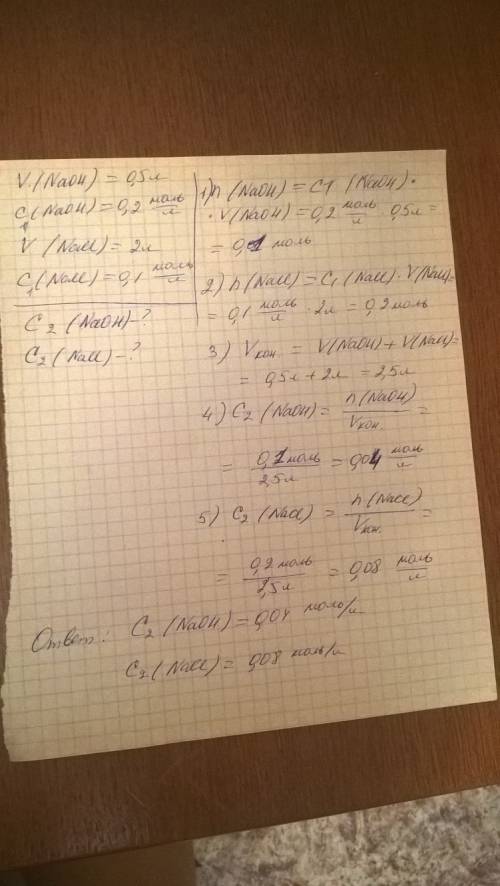 V(NaOH) = 0,5л
C₁(NaOH) = 0,2 моль/л
V(NaCl) = 2л
C₁(NaCl) = 0,1 моль/л
C₂(NaOH) - ?
C₂(NaCl) - ?
1) n(NaOH) = C1(NaOH) ·
· V(NaOH) = 0,2 моль/л · 0,5л =
= 0,1 моль
2) n(NaCl) = C₁(NaCl) · V(NaCl) =
= 0,1 моль/л · 2л = 0,2 моль
3) Vкон. = V(NaOH) + V(NaCl) =
= 0,5л + 2л = 2,5л
4) C₂(NaOH) = n(NaOH)/Vкон. =
= 0,1 моль/2,5л = 0,04 моль/л
5) C₂(NaCl) = n(NaCl)/Vкон. =
= 0,2 моль/2,5л = 0,08 моль/л
Ответ: C₂(NaOH) = 0,04 моль/л
C₂(NaCl) = 0,08 моль/л